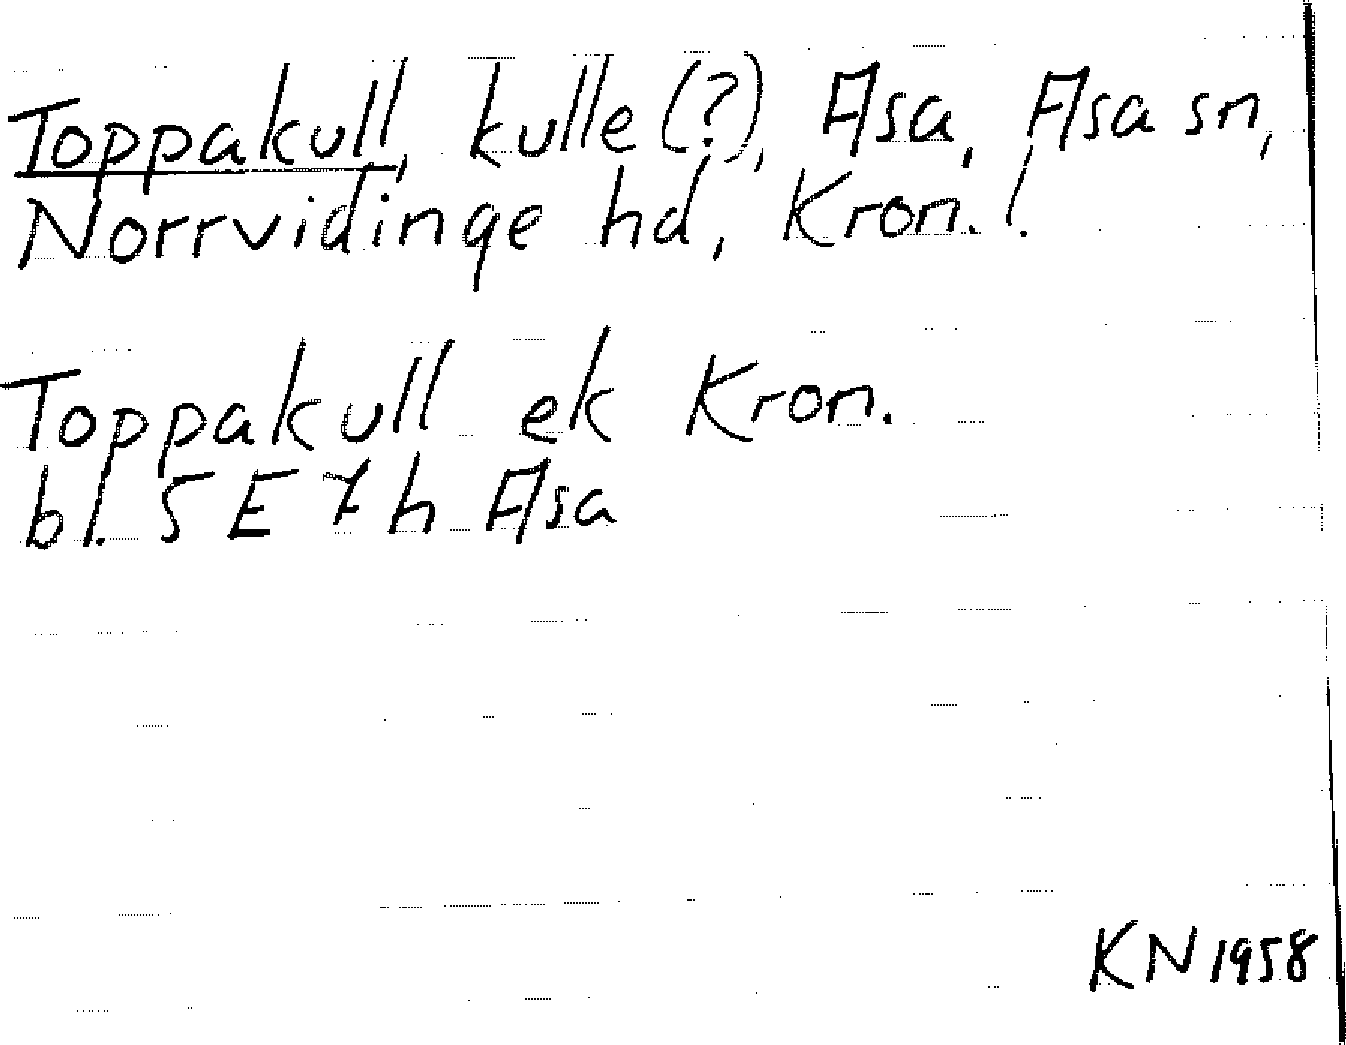 Toppakull, kulle (?), Asa, Asa sn,
Norrvidinge hd, Kron. !
Toppakull ek Kron.
bl. 5 E 7 h Asa
KN 1958